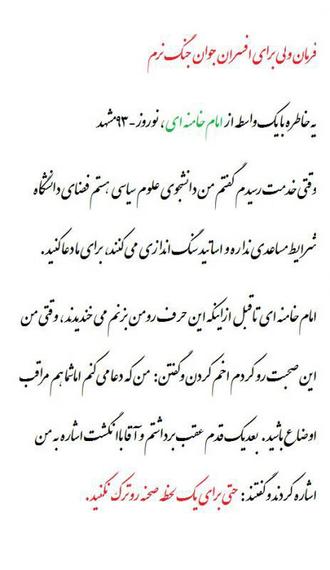 فرمان ولی برای افسران جوان جنگ نرم
یه خاطره با یک واسط از امام خامنه ای ، نوروز -۹۳ مشهد
وقتی خدمت رسیدم گفتم من دانشجوی علوم سیاسی هستم فضای دانشگاه
شرایط مساعدی نداره و اساتید سنگ اندازی می کنند، برای ما دعا کنید.
امام خامنه ای تا قبل از اینکه این حرف رو من بزنم می خندیدند، وقتی من
این صحبت رو کردم اخم کردن و گفتن: من که دعا می کنم اما شما هم مراقب
اوضاع باشید. بعد یک قدم عقب برداشتم و آقا با انگشت اشاره به من
اشاره کردند و گفتند: حتی برای یک لحظه صحنه رو ترک نکنید.